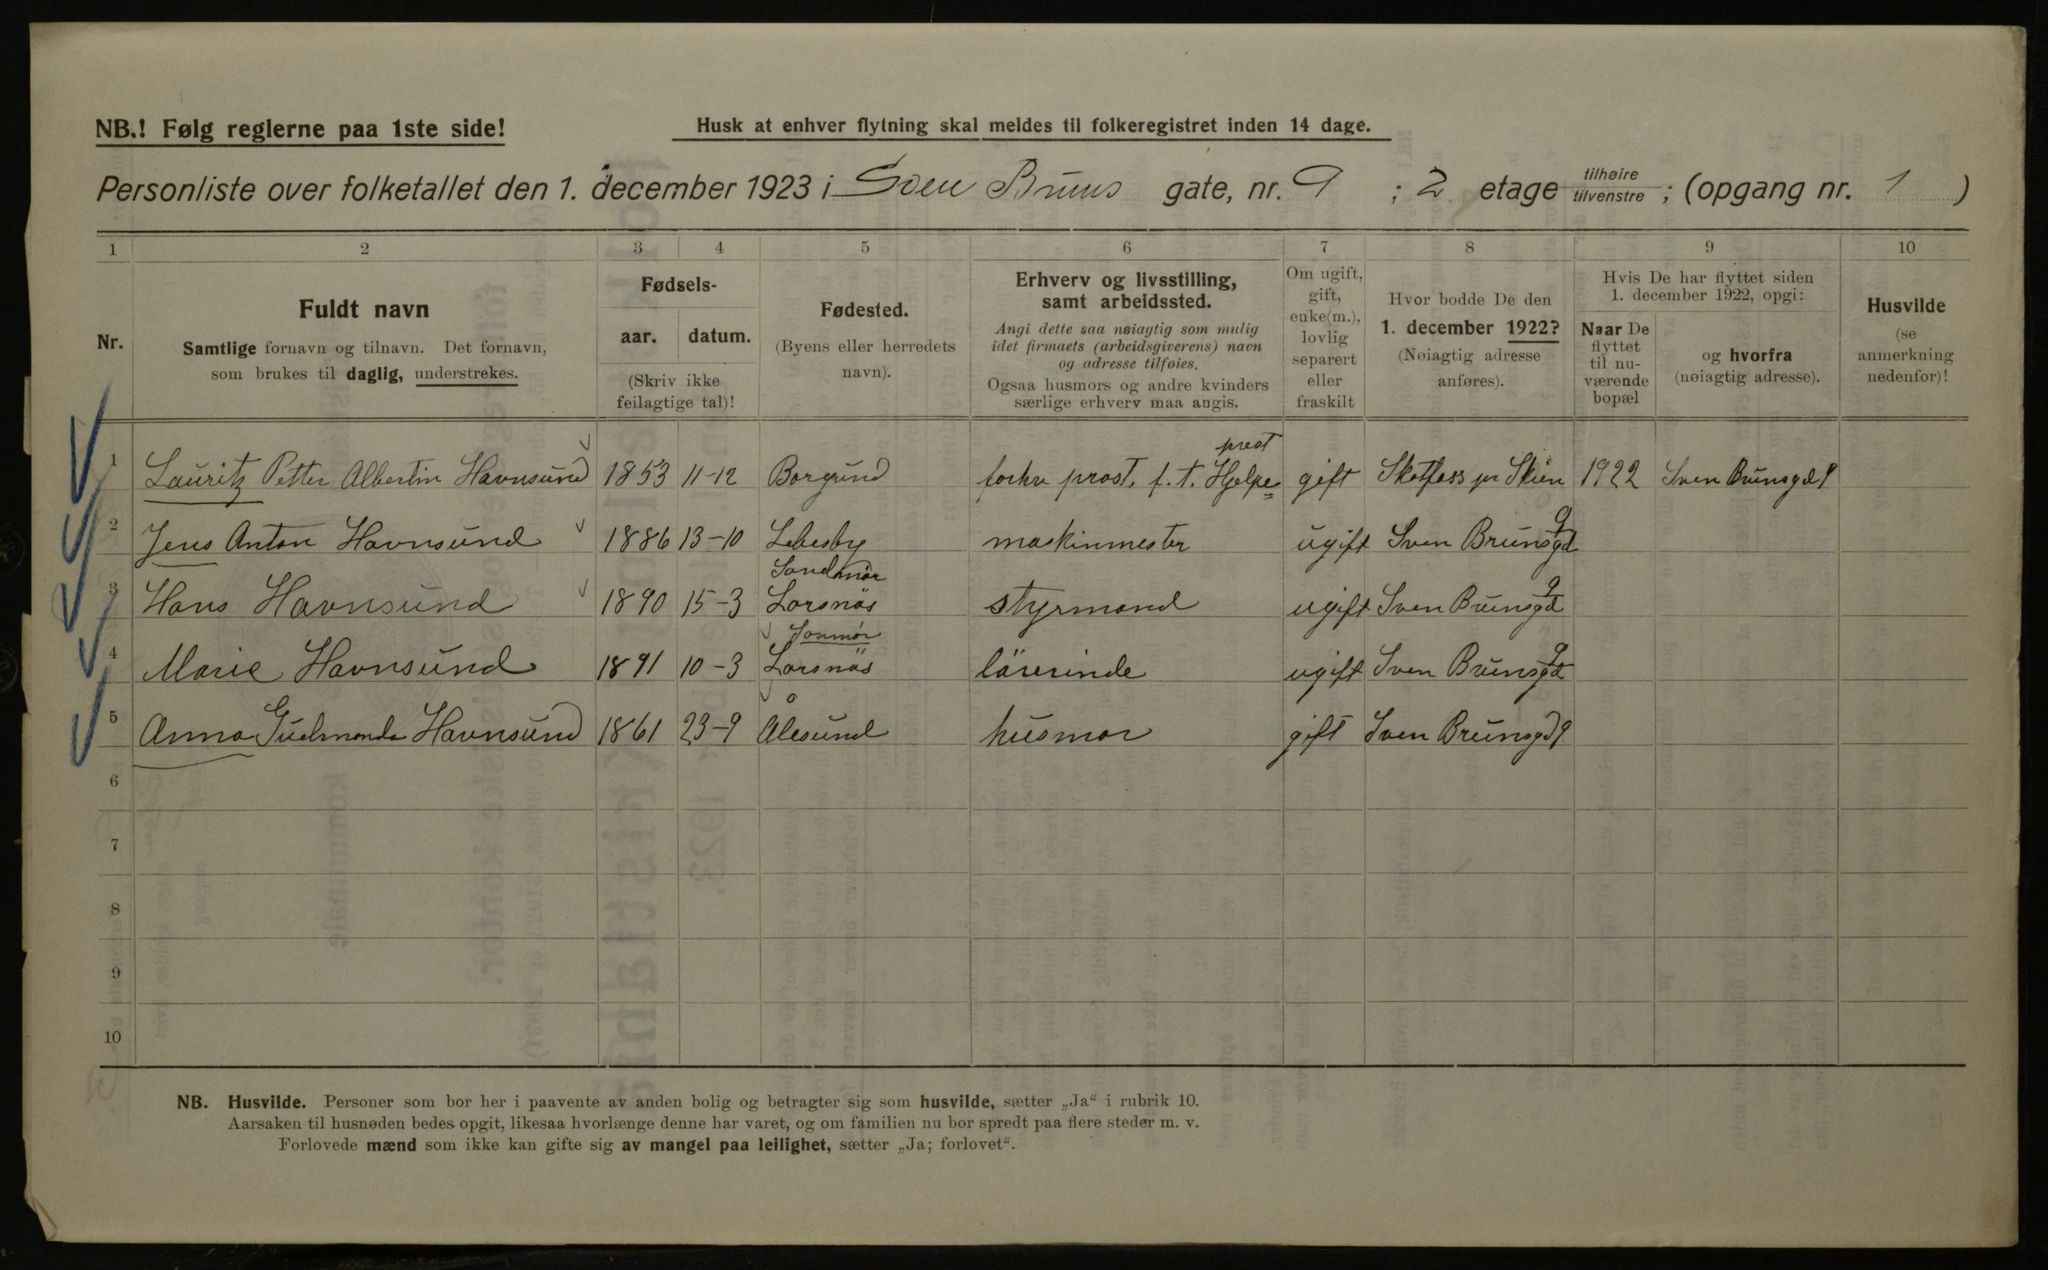 NB.! Følg reglerne paa 1ste side!
Husk at enhver flytning skal meldes til folkeregistret inden 14 dage.
Personliste over folketallet den 1. december 1923 i Sven Bruns gate, nr. 9 ; 2 etage tilhøire tilvenstre ; (opgang nr. 1 )
1 2 3 4 5 6 7 8 9 10
Nr.
Fuldt navn
Samtlige fornavn og tilnavn. Det fornavn,
som brukes til daglig, understrekes.
Fødsels-
aar. datum.
(Skriv ikke
feilagtige tal)!
Fødested.
(Byens eller herredets
navn).
Erhverv og livsstilling,
samt arbeidssted.
Angi dette saa nøiagtig som mulig
idet firmaets (arbeidsgiverens) navn
og adresse tilføies.
Ogsaa husmors og andre kvinders
særlige erhverv maa angis.
Om ugift,
gift,
enke(m.),
lovlig
separert
eller
fraskilt
Hvor bodde De den
1. december 1922?
(Nøiagtig adresse
anføres).
Hvis De har flyttet siden
1. december 1922, opgi:
Naar De
flyttet
til nu-
værende
bopæl
og hvorfra
(nøiagtig adresse).
Husvilde
(se
anmerkning
nedenfor)!
prest
1 Lauritz Petter Albertin Havnsund 1853 11-12 Borgund forhv prost, f. t. Hjelpe= gift Skotfoss pr Skien 1922 Sven Brunsgd 9
2 Jens Anton Havnsund 1886 13-10 Lebesby maskinmester ugift Sven Brunsgd 9
Søndmør
3 Hans Havnsund 1890 15-3 Lorsnäs styrmand ugift Sven Brunsgd 9
Sønmør
4 Marie Havnsund 1891 10-3 Lorsnäs lärerinde ugift Sven Brunsgd 9
5 Anna Gudmanda Havnsund 1861 23-9 Ålesund husmor gift Sven Brunsgd 9
6
7
8
9
10
NB. Husvilde. Personer som bor her i paavente av anden bolig og betragter sig som husvilde, sætter „Ja“ i rubrik 10.
Aarsaken til husnøden bedes opgit, likesaa hvorlænge denne har varet, og om familien nu bor spredt paa flere steder m. v.
Forlovede mænd som ikke kan gifte sig av mangel paa leilighet, sætter „Ja; forlovet“.